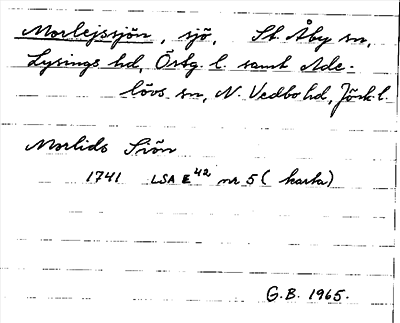 Morlejssjön, sjö, St. Åby sn,
Lysings hd, Östg. l. samt Ade-
lövs sn, N. Vedbo hd, Jönk. l.
Morlids Siön
1741 LSA E 42 nr 5 (karta)
G.B. 1965.